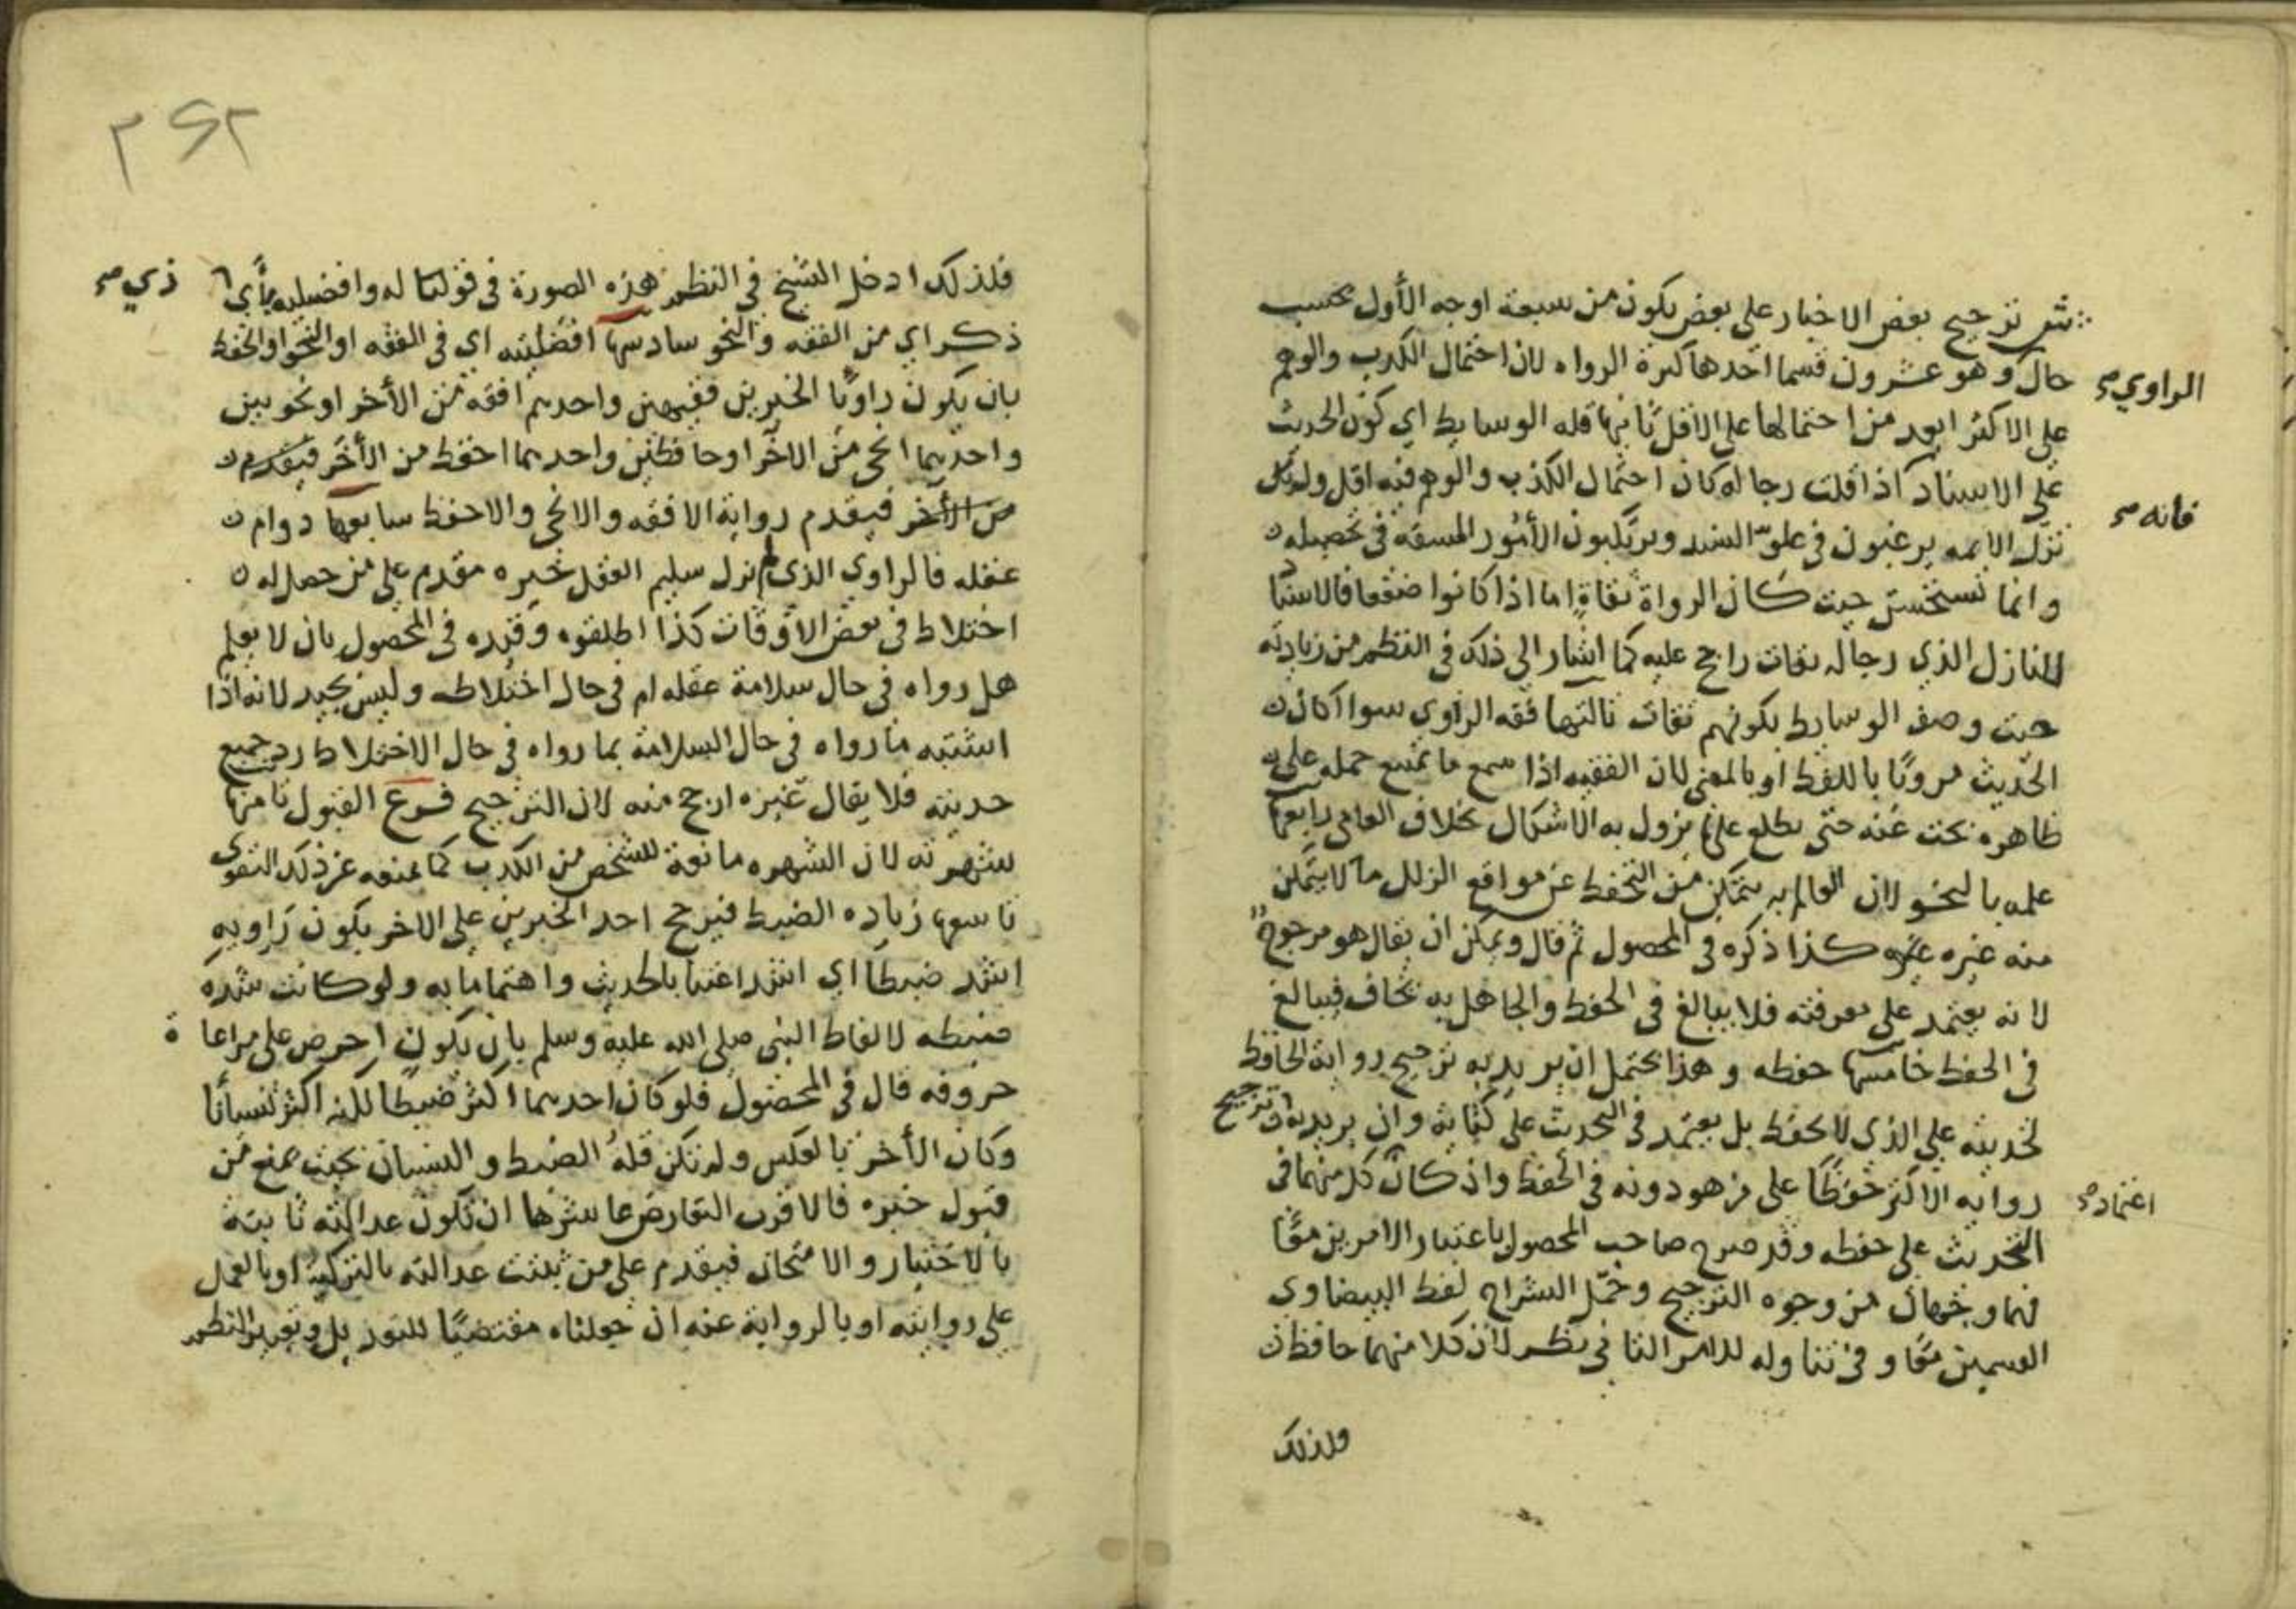 ش ترجيح بعض الاخبار على بعض يكون من سبعة اوجه الأول بحسب
حال الراوي صح وهو عشرون قسما احدها كثرة الرواه لان احتمال الكذب والوهم
على الاكثر ابعد من احتمالها على الاقل ثانيها قله الوسايط اي كون الحديث
على الاسناد فانه صح اذا قلت رجاله كان احتمال الكذب والوهم فيه اقل ولذلك
نزل الايمه يرغبون في علو السند ويرتكبون الأمور المسقه في تحصيله
وانما يستحسن حيث كان الرواة ثقاة اما اذا كانوا ضعفا فالاسناد
النازل الذي رجاله ثقات راجح عليه كما اشار الى ذلك في النظم من زيادته
حيث وصف الوسايط بكونهم ثقات ثالثها فقه الراوي سوا اكان
الحديث مرويا باللفظ او بالمعنى لان الفقيه اذا سمع ما يمتنع حمله على
ظاهره بحث عنه حتى يطلع على ما يزول به الاشكال بخلاف العامي رابعها
علمه بالنحو لان العالم به يتمكن من التحفظ عن مواقع الزلل ما لا يتمكن
منه غيره كذا ذكره في المحصول ثم قال ويمكن ان يقال هو مرجوح
لانه يعتمد على معرفته فلا يبالغ في الحفظ والجاهل به يخاف فيبالغ
في الحفظ خامسها حفظه وهذا يحتمل ان يريد به ترجيح رواية الحافظ
لحديثه على الذي لا يحفظ بل يعتمد في التحديث على كتابه وان يريد به ترجيح
روايه الاكثر حفظا على من هو دونه في الحفظ واذ كان كل منهما في
التحديث اعتماده على حفظه وقد صرح صاحب المحصول باعتبار الامرين معا
فهما وجهان من وجوه الترجيح وحمل الشراح لفظ البيضاوي
القسمين معا وفي تناوله للامر الثاني نظر لان كلا منهما حافظ
ولذلك
٣٤٢
فلذلك ادخل الشيخ في النظم هذه الصورة في قولنا له وافضليه بأي ذي صح
ذكر اي من الفقه والنحو سادسها افضليته اي في الفقه او النحو او الحفظ
بان يكون راويا الخبرين فقيهين واحدهم افقه من الأخر او نحويين
واحدهما انحى من الاخر او حافظين واحدهما احفظ من الأخر فيقدم
من الأخر فيقدم رواية الافقه والانحى والاحفظ سابعها دوام
عقله فالراوي الذي لم يزل سليم العقل خبره مقدم على من حصل له
اختلاط في بعض الاوقات كذا اطلقوه وقيده في المحصول بان لا يعلم
هل رواه في حال سلامة عقله ام في حال اختلاطه وليس بجيد لانه اذا
اشتبه ما رواه في حال السلامة بما رواه في حال الاختلاط رد جميع
حديثه فلا يقال غيره ارجح منه لان الترجيح فرع القبول ثامنها
شهرته لان الشهره مانعة للشخص من الكذب كما يمنعه عن ذلك التقوى
تاسعها زياده الضبط فيرجح احد الخبرين على الاخر بكون راويه
اشد ضبطا اي اشد اعتنا بالحديث واهتماما به ولو كانت شدة
ضبطه لالفاظ النبي صلى الله عليه وسلم بان يكون احرص على مراعاة
حروفه قال في المحصول فلو كان احدهما اكثر ضبطا لكنه اكثر نسيانا
وكان الأخر بالعكس ولم تكن قلة الضبط والنسيان بحيث يمنع من
قبول خبره فالاقرب التعارض عاشرها ان تكون عدالته ثابتة
بالاختبار والامتحان فيقدم على من ثبتت عدالته بالتزكية او بالعمل
على روايته او بالرواية عنه ان جعلناه مقتضيا للتعديل وتعبير النظم